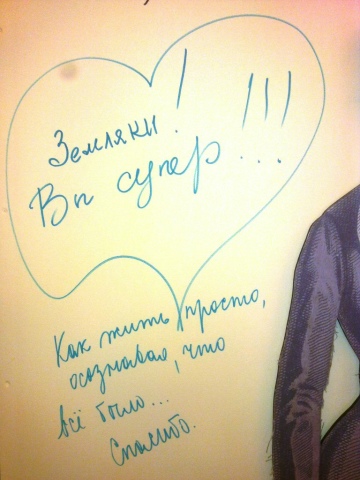 Земляки!
Вы супер...!!!
Как жить просто,
осознавая, что
всё было...
Спасибо.